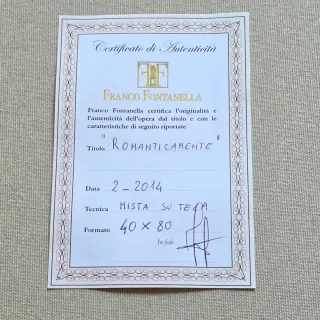 Certificato di Autenticità
FRANCO FONTANELLA
Franco Fontanella certifica l'originalità e
l'autenticità dell'opera dal titolo e con le
caratteristiche di seguito riportate
Titolo "ROMANTICAMENTE"
Data 2-2014
Tecnica MISTA SU TELA
Formato 40 x 80
In fede